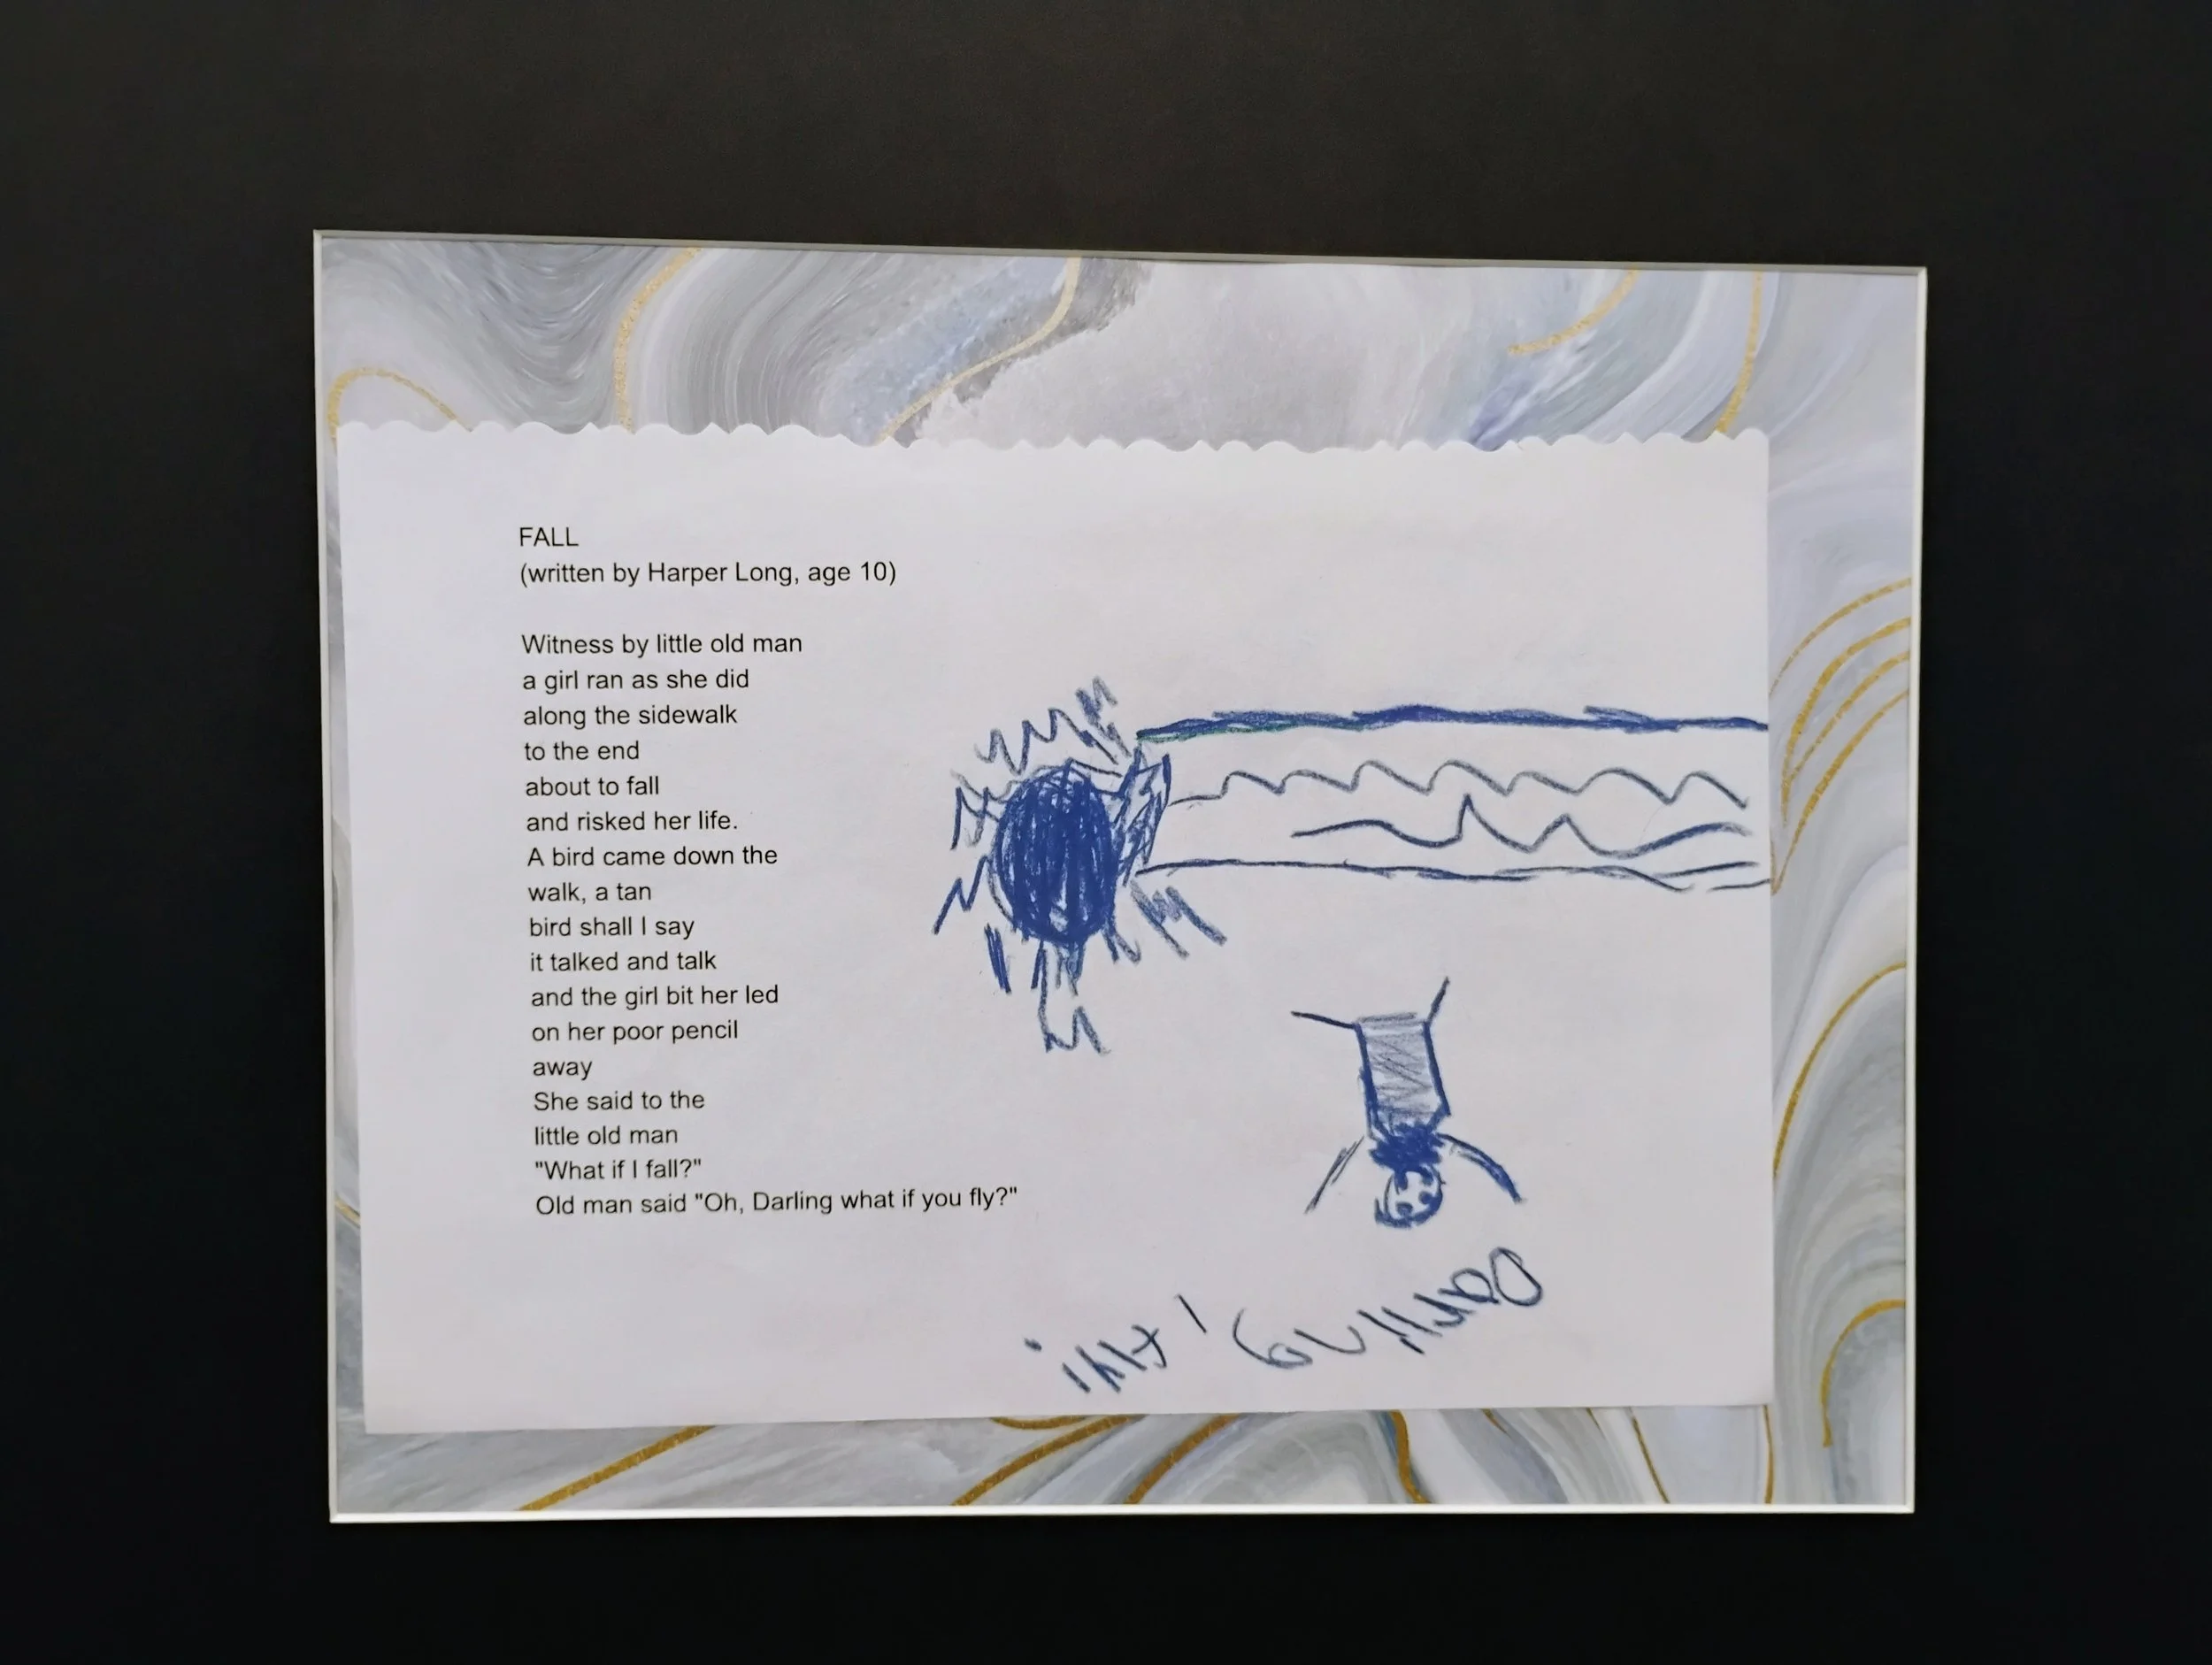 FALL
(written by Harper Long, age 10)
Witness by little old man
a girl ran as she did
along the sidewalk
to the end
about to fall
and risked her life.
A bird came down the
walk, a tan
bird shall I say
it talked and talk
and the girl bit her led
on her poor pencil
away
She said to the
little old man
"What if I fall?"
Old man said "Oh, Darling what if you fly?"